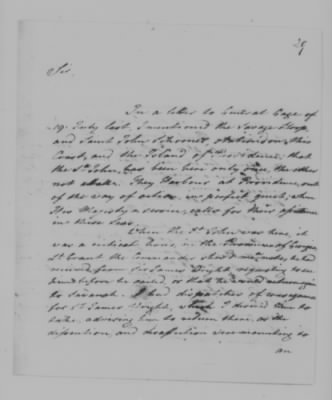 29
Sir
In a letter to General Gage of
19. July last I mentioned the Savage Sloop
and Saint John Schooner, attend on this
Coast, and the Island of Providence, that
the St. John, has been here only once, the other
not at all. They Harbour at Providence, out
of the way of action in perfect quiet, when
His Majesty's service, calls for their assistance
in these Seas.
When the St. John was here, it
was a critical time, in the Province of Georgia
St. the Commander should
from Sir James Wright, requesting
before he sailed, or that he would return
to Savanah. I had dispatches of consequence
for Sr. James Wright, which I desired him to
take, advising him to return there, as the
disposition, and disaffection was mounting to
an